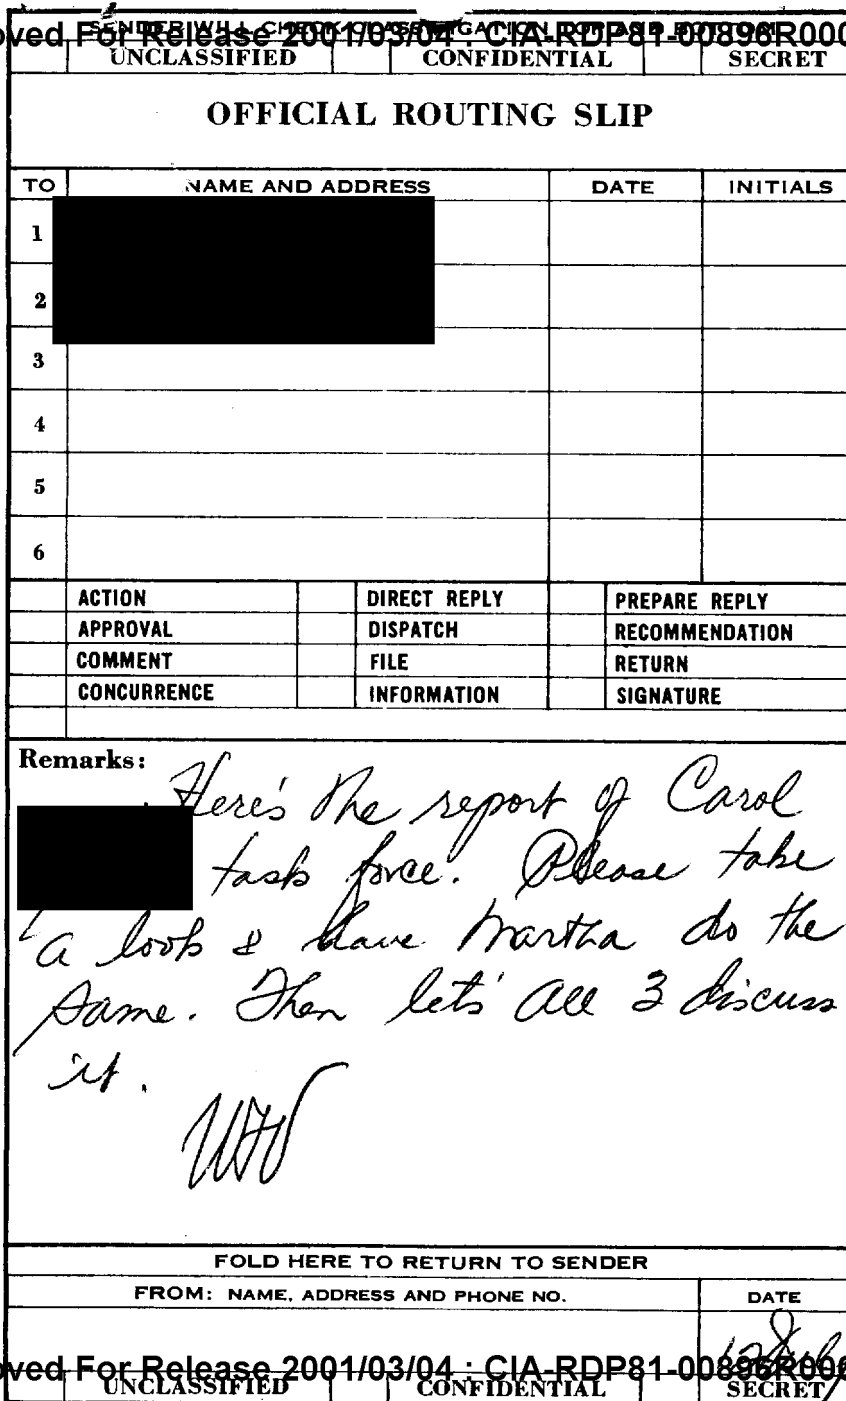 SENDER WILL CHECK CLASSIFICATION TOP AND BOTTOM
oved For Release 2001/03/04 : CIA-RDP81-00896R000
UNCLASSIFIED CONFIDENTIAL SECRET
OFFICIAL ROUTING SLIP
TO NAME AND ADDRESS DATE INITIALS
1
2
3
4
5
6
ACTION DIRECT REPLY PREPARE REPLY
APPROVAL DISPATCH RECOMMENDATION
COMMENT FILE RETURN
CONCURRENCE INFORMATION SIGNATURE
Remarks:
Here's the report of Carol
task force. Please take
a look & have Martha do the
same. Then let's all 3 discuss
it.
FOLD HERE TO RETURN TO SENDER
FROM: NAME, ADDRESS AND PHONE NO. DATE
oved For Release 2001/03/04 : CIA-RDP81-00896R000
UNCLASSIFIED CONFIDENTIAL SECRET